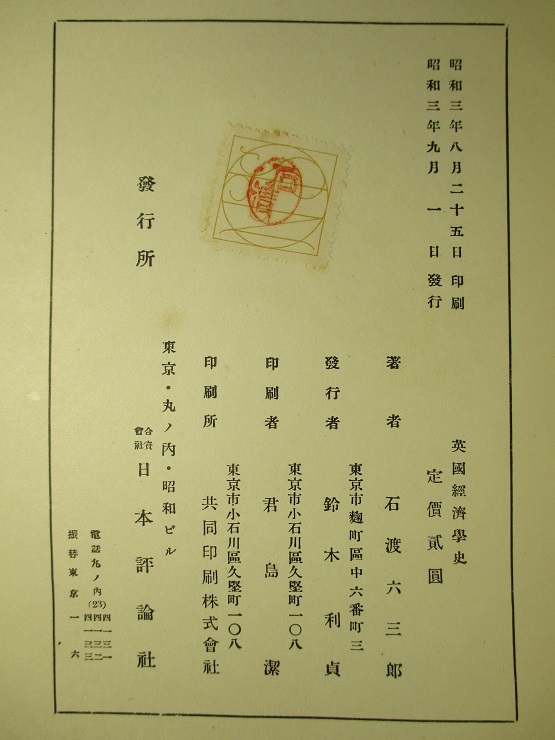 昭和三年八月二十五日印刷
昭和三年九月一日發行
英國經濟學史
定價貳圓
著者 石渡六三郎
東京市麴町區中六番町三
發行者 鈴木利貞
東京市小石川區久堅町一〇八
印刷者 君島潔
東京市小石川區久堅町一〇八
印刷所 共同印刷株式會社
東京・丸ノ內・昭和ビル
發行所 合資會社 日本評論社
振替東京一六